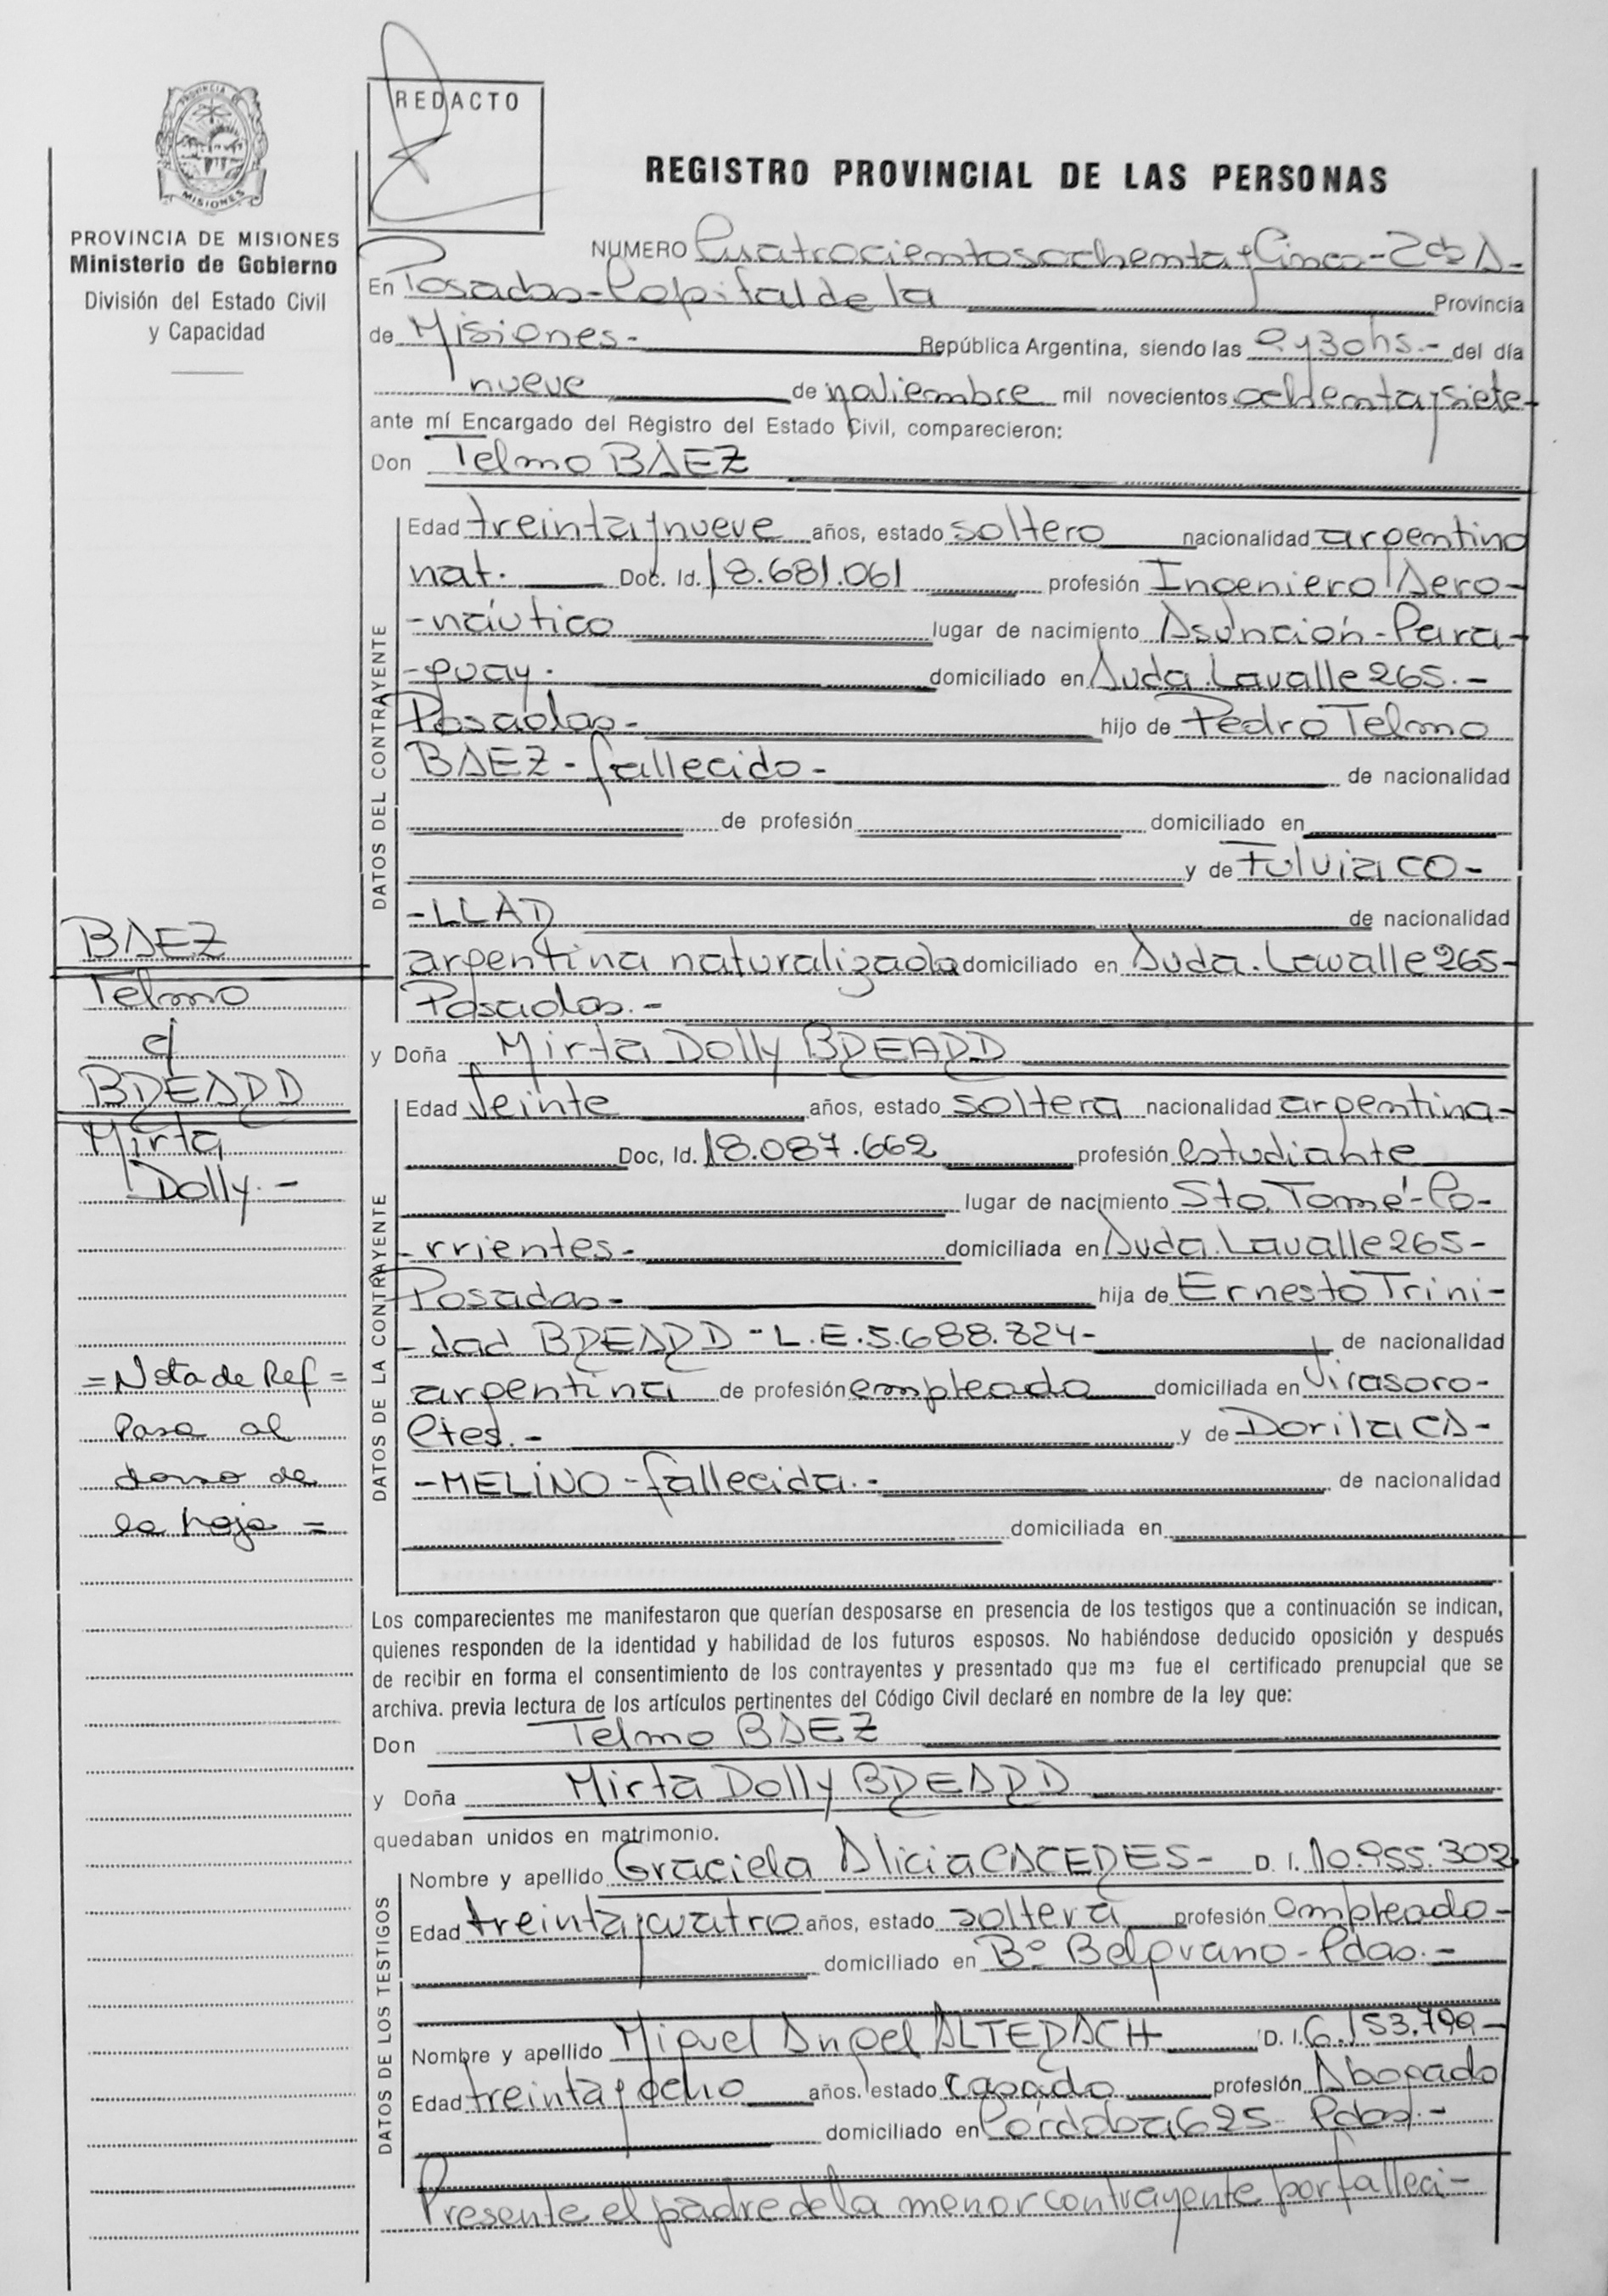 PROVINCIA DE MISIONES
REDACTO
REGISTRO PROVINCIAL DE LAS PERSONAS
PROVINCIA DE MISIONES
Ministerio de Gobierno
División del Estado Civil
y Capacidad
NUMERO Cuatrocientos ochenta y Cinco - 2da A-
En Posadas - Capital de la Provincia
de Misiones.- República Argentina, siendo las 9 y 30 hs.- del día
nueve de noviembre mil novecientos ochenta y siete
ante mí Encargado del Registro del Estado Civil, comparecieron:
Don Telmo BAEZ
DATOS DEL CONTRAYENTE
Edad treinta y nueve años, estado soltero nacionalidad argentino
nat. Doc. Id. 18.681.061 profesión Ingeniero Aero-
-náutico lugar de nacimiento Asunción - Para-
-guay. domiciliado en Avda. Lavalle 265.-
Posadas- hijo de Pedro Telmo
BAEZ - fallecido - de nacionalidad
de profesión domiciliado en
y de Fulvia CO-
-LLAR de nacionalidad
argentina naturalizada domiciliado en Avda. Lavalle 265-
Posadas.-
y Doña Mirta Dolly BREARD
DATOS DE LA CONTRAYENTE
Edad Veinte años, estado soltera nacionalidad argentina-
Doc, Id. 18.087.662 profesión estudiante
lugar de nacimiento Sto. Tomé - Co-
-rrientes- domiciliada en Avda. Lavalle 265-
Posadas- hija de Ernesto Trini-
-dad BREARD - L.E. 5.688.824- de nacionalidad
argentina de profesión empleado domiciliada en Virasoro-
Ctes.- y de Dorila CA-
-MELINO - fallecida.- de nacionalidad
domiciliada en
BAEZ
Telmo
c/
BREARD
Mirta
Dolly.-
=Nota de Ref=
Pasa al
dorso de
la hoja =
Los comparecientes me manifestaron que querían desposarse en presencia de los testigos que a continuación se indican,
quienes responden de la identidad y habilidad de los futuros esposos. No habiéndose deducido oposición y después
de recibir en forma el consentimiento de los contrayentes y presentado que me fue el certificado prenupcial que se
archiva. previa lectura de los artículos pertinentes del Código Civil declaré en nombre de la ley que:
Don Telmo BAEZ
y Doña Mirta Dolly BREARD
quedaban unidos en matrimonio.
DATOS DE LOS TESTIGOS
Nombre y apellido Graciela Alicia CACERES- D. I. 10.955.302
Edad treinta y cuatro años, estado soltera profesión empleado-
domiciliado en Bº Belgrano - Pdas.-
Nombre y apellido Miguel Angel ALTERACH D. I. 6.153.799-
Edad treinta y ocho años. estado casado profesión Abogado
domiciliado en Córdoba 625 Pdas.-
Presente el padre de la menor contrayente por falleci-